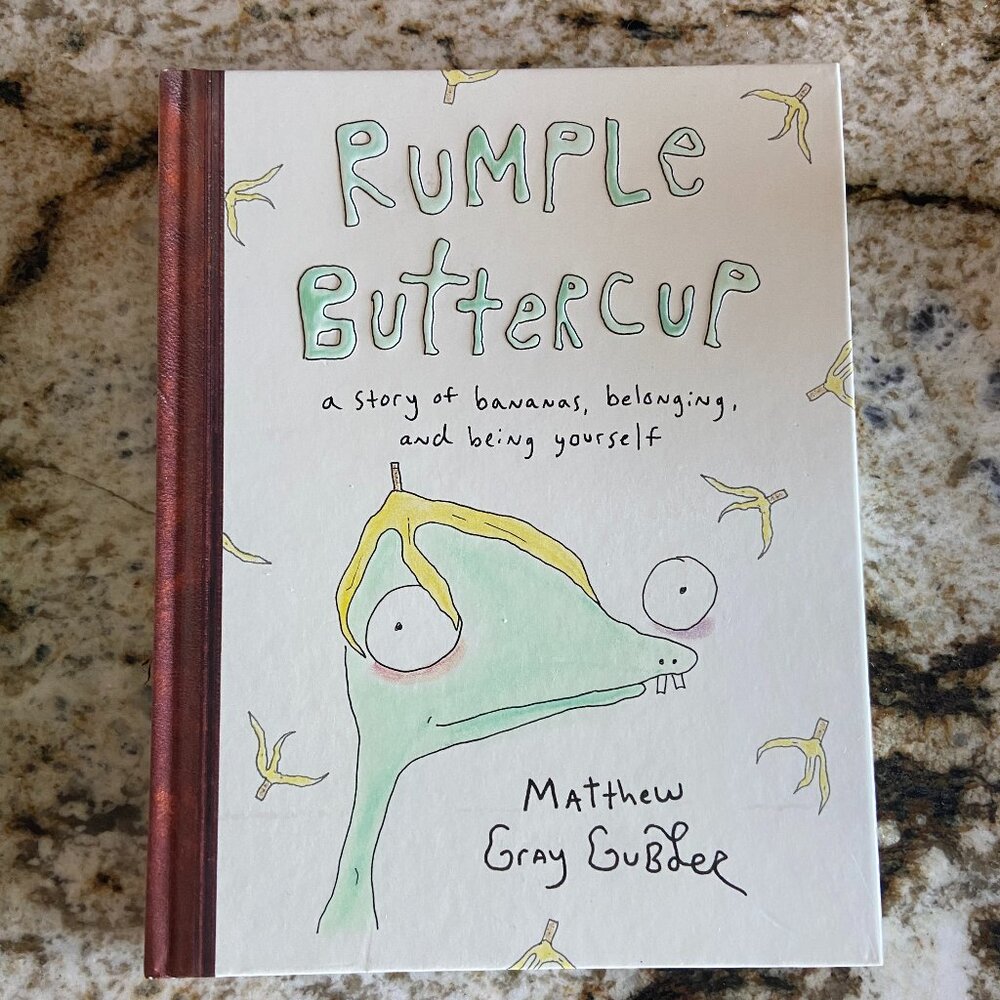 RUMPLE
BUTTERCUP
a story of bananas, belonging,
and being yourself
Matthew
Gray Gubler